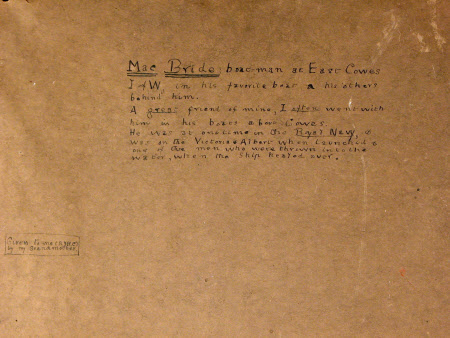 Mac Bride boat-man at East Cowes
I of W, in his favorite boat & his others
behind him.
A great friend of mine, I often went with
him in his boats about Cowes.
He was at one time in the Royal Navy, &
was on the Victoria & Albert when launched &
one of the men who were thrown into the
water, when the ship heeled over.
by my Grandmother